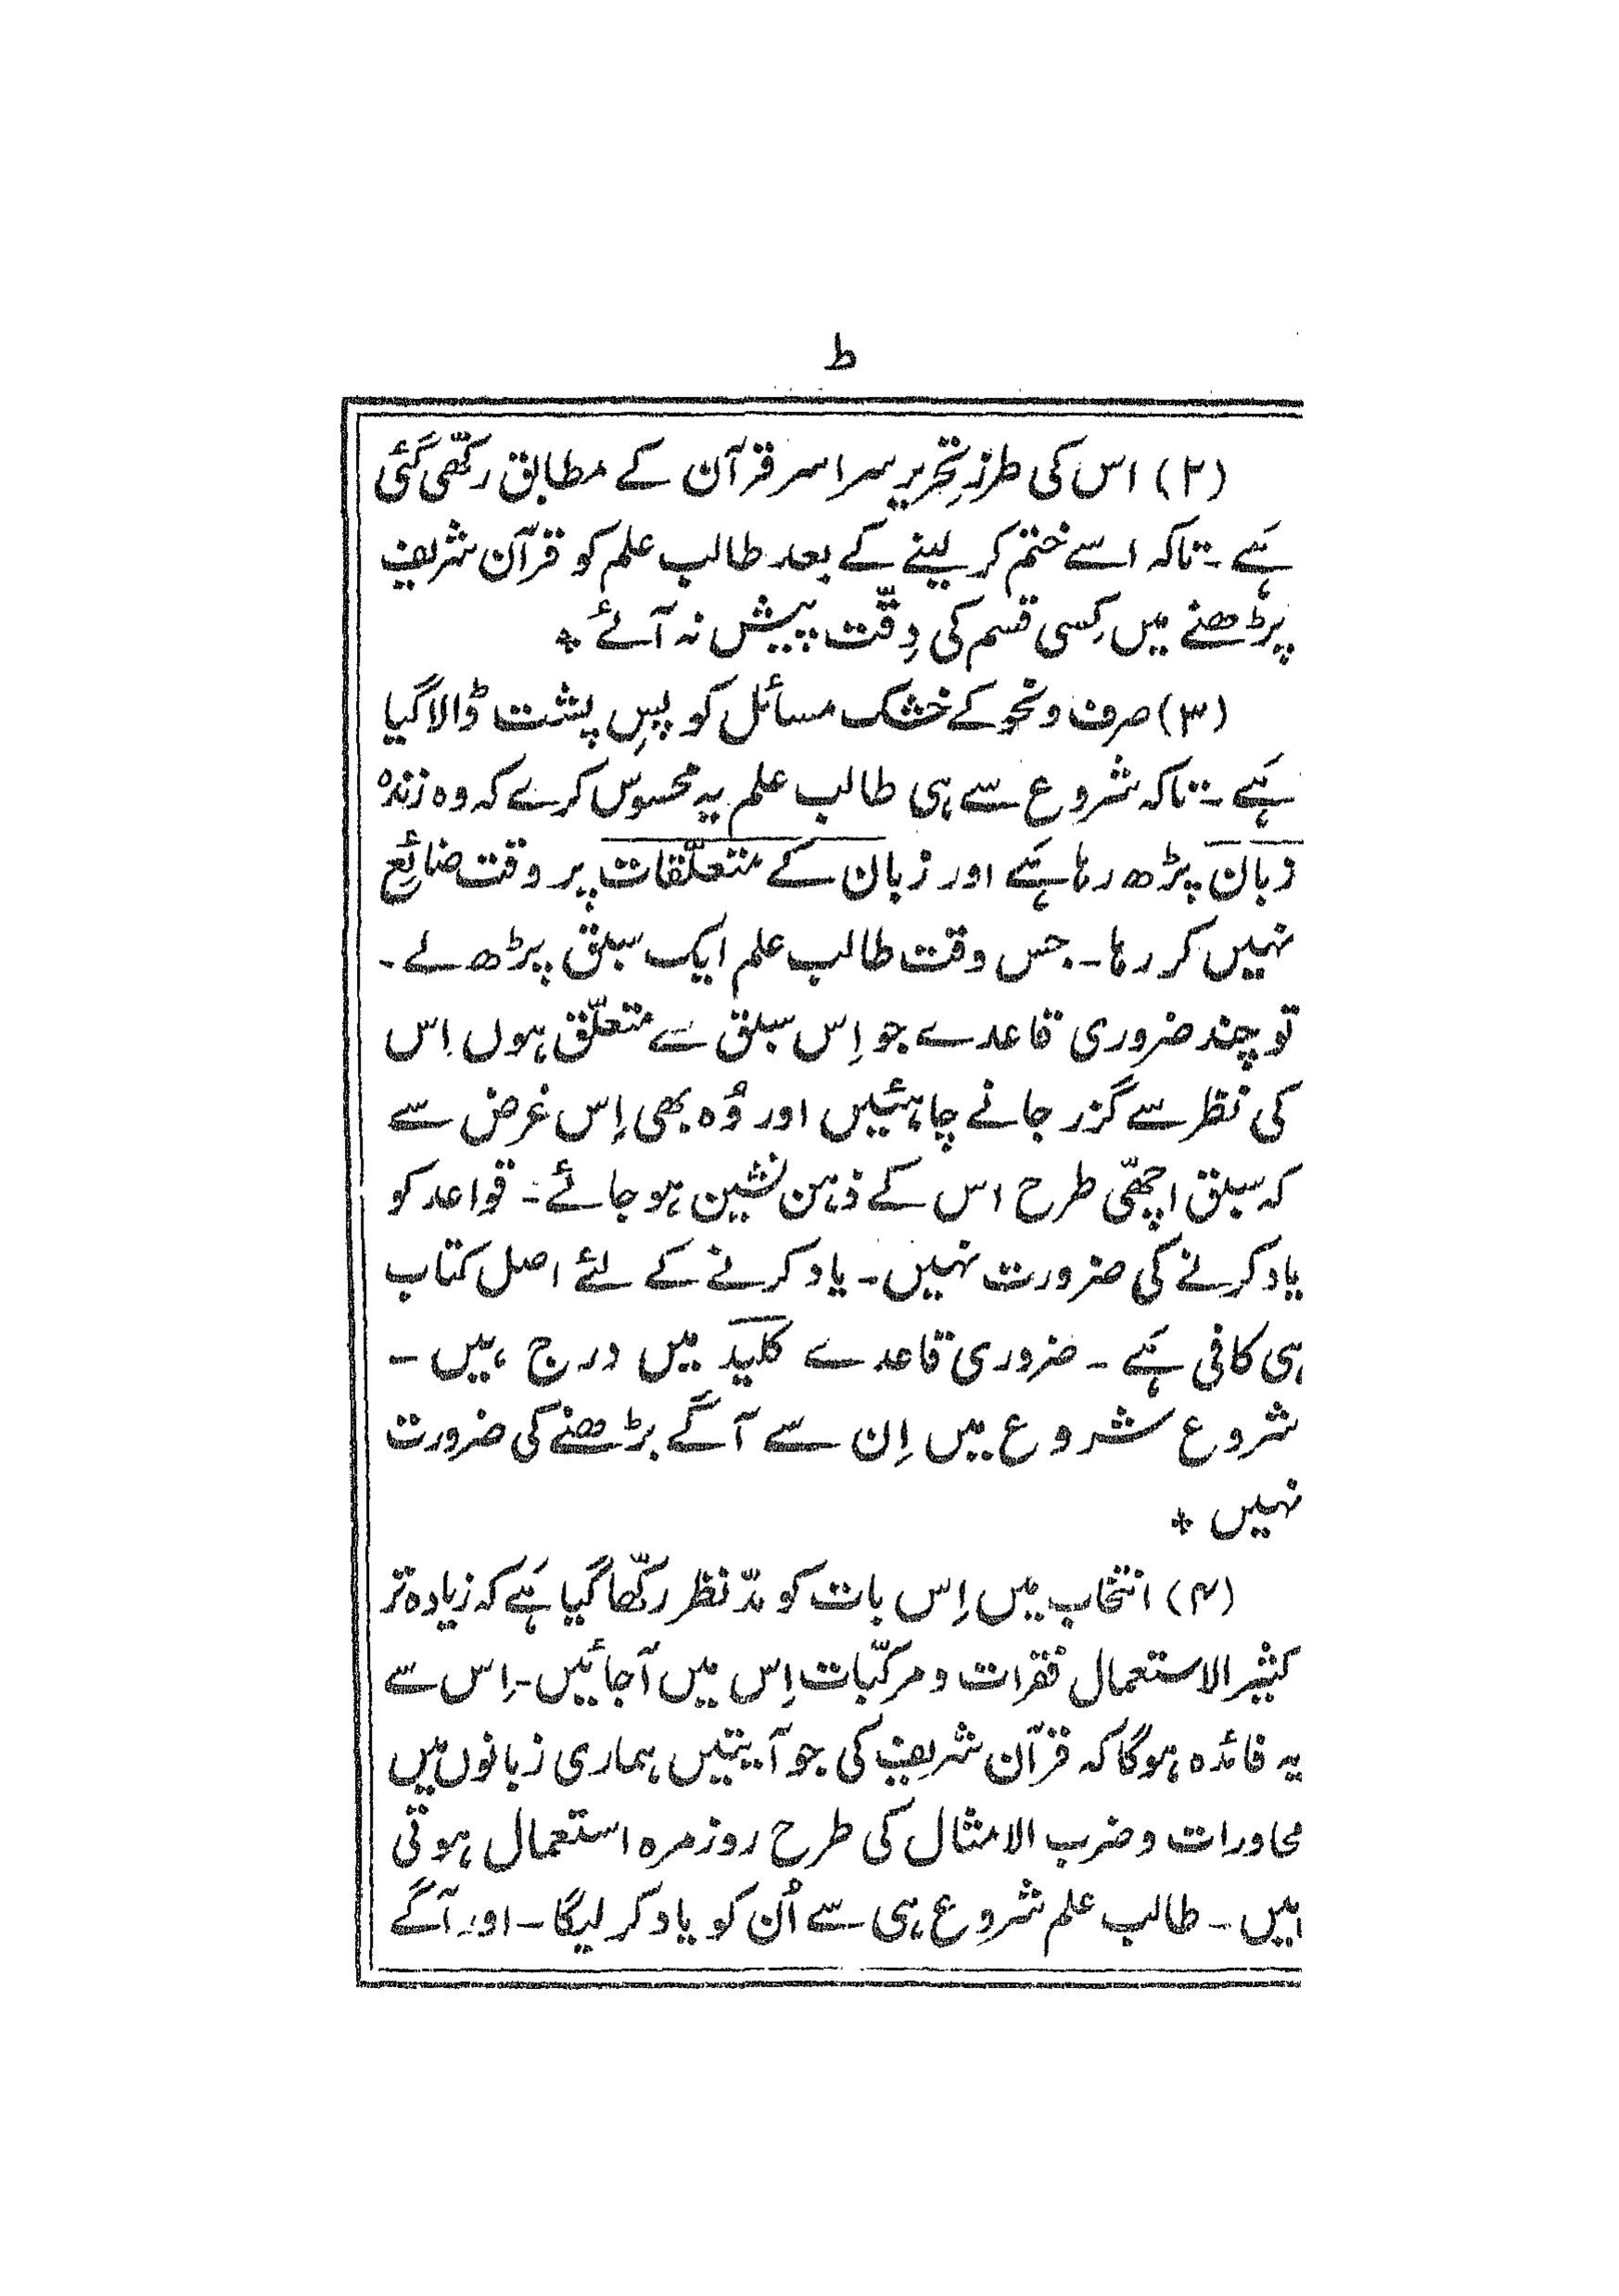 ط
(۲) اس کی طرزِ تحریر سراسر قرآن کے مطابق رکھّی گئی
ہَے ۔ تاکہ اسے ختم کر لینے کے بعد طالب علم کو قرآن شریف
پڑھنے میں کِسی قسم کی دِقّت پیش نہ آئے *
(۳) صرف و نحو کے خشک مسائل کو پسِ پشت ڈالا گیا
ہَے ۔ تاکہ شروع سے ہی طالب علم یہ محسوس کرے کہ وہ زندہ
زبان پڑھ رہا ہَے اور زبان کے متعلّقات پر وقت ضائع
نہیں کر رہا ۔ جس وقت طالب علم ایک سبق پڑھ لے ۔
تو چند ضروری قاعدے جو اِس سبق سے متعلّق ہوں اِس
کی نظر سے گزر جانے چاہئیں اور وُہ بھی اِس غرض سے
کہ سبق اچھّی طرح اس کے ذہن نشین ہو جائے ۔ قواعد کو
یاد کرنے کی ضرورت نہیں ۔ یاد کرنے کے لئے اصل کتاب
ہی کافی ہَے ۔ ضروری قاعدے کلید میں درج ہیں ۔
شروع شروع میں اِن سے آگے بڑھنے کی ضرورت
نہیں *
(۴) انتخاب میں اِس بات کو مدّ نظر رکھّا گیا ہَے کہ زیادہ تر
کثیر الاستعمال فقرات و مرکّبات اِس میں آجائیں ۔ اِس سے
یہ فائدہ ہوگا کہ قرآن شریف کی جو آیتیں ہماری زبانوں میں
محاورات و ضرب الامثال کی طرح روزمرہ استعمال ہوتی
ہیں ۔ طالب علم شروع ہی سے اُن کو یاد کر لیگا ۔ اور آگے